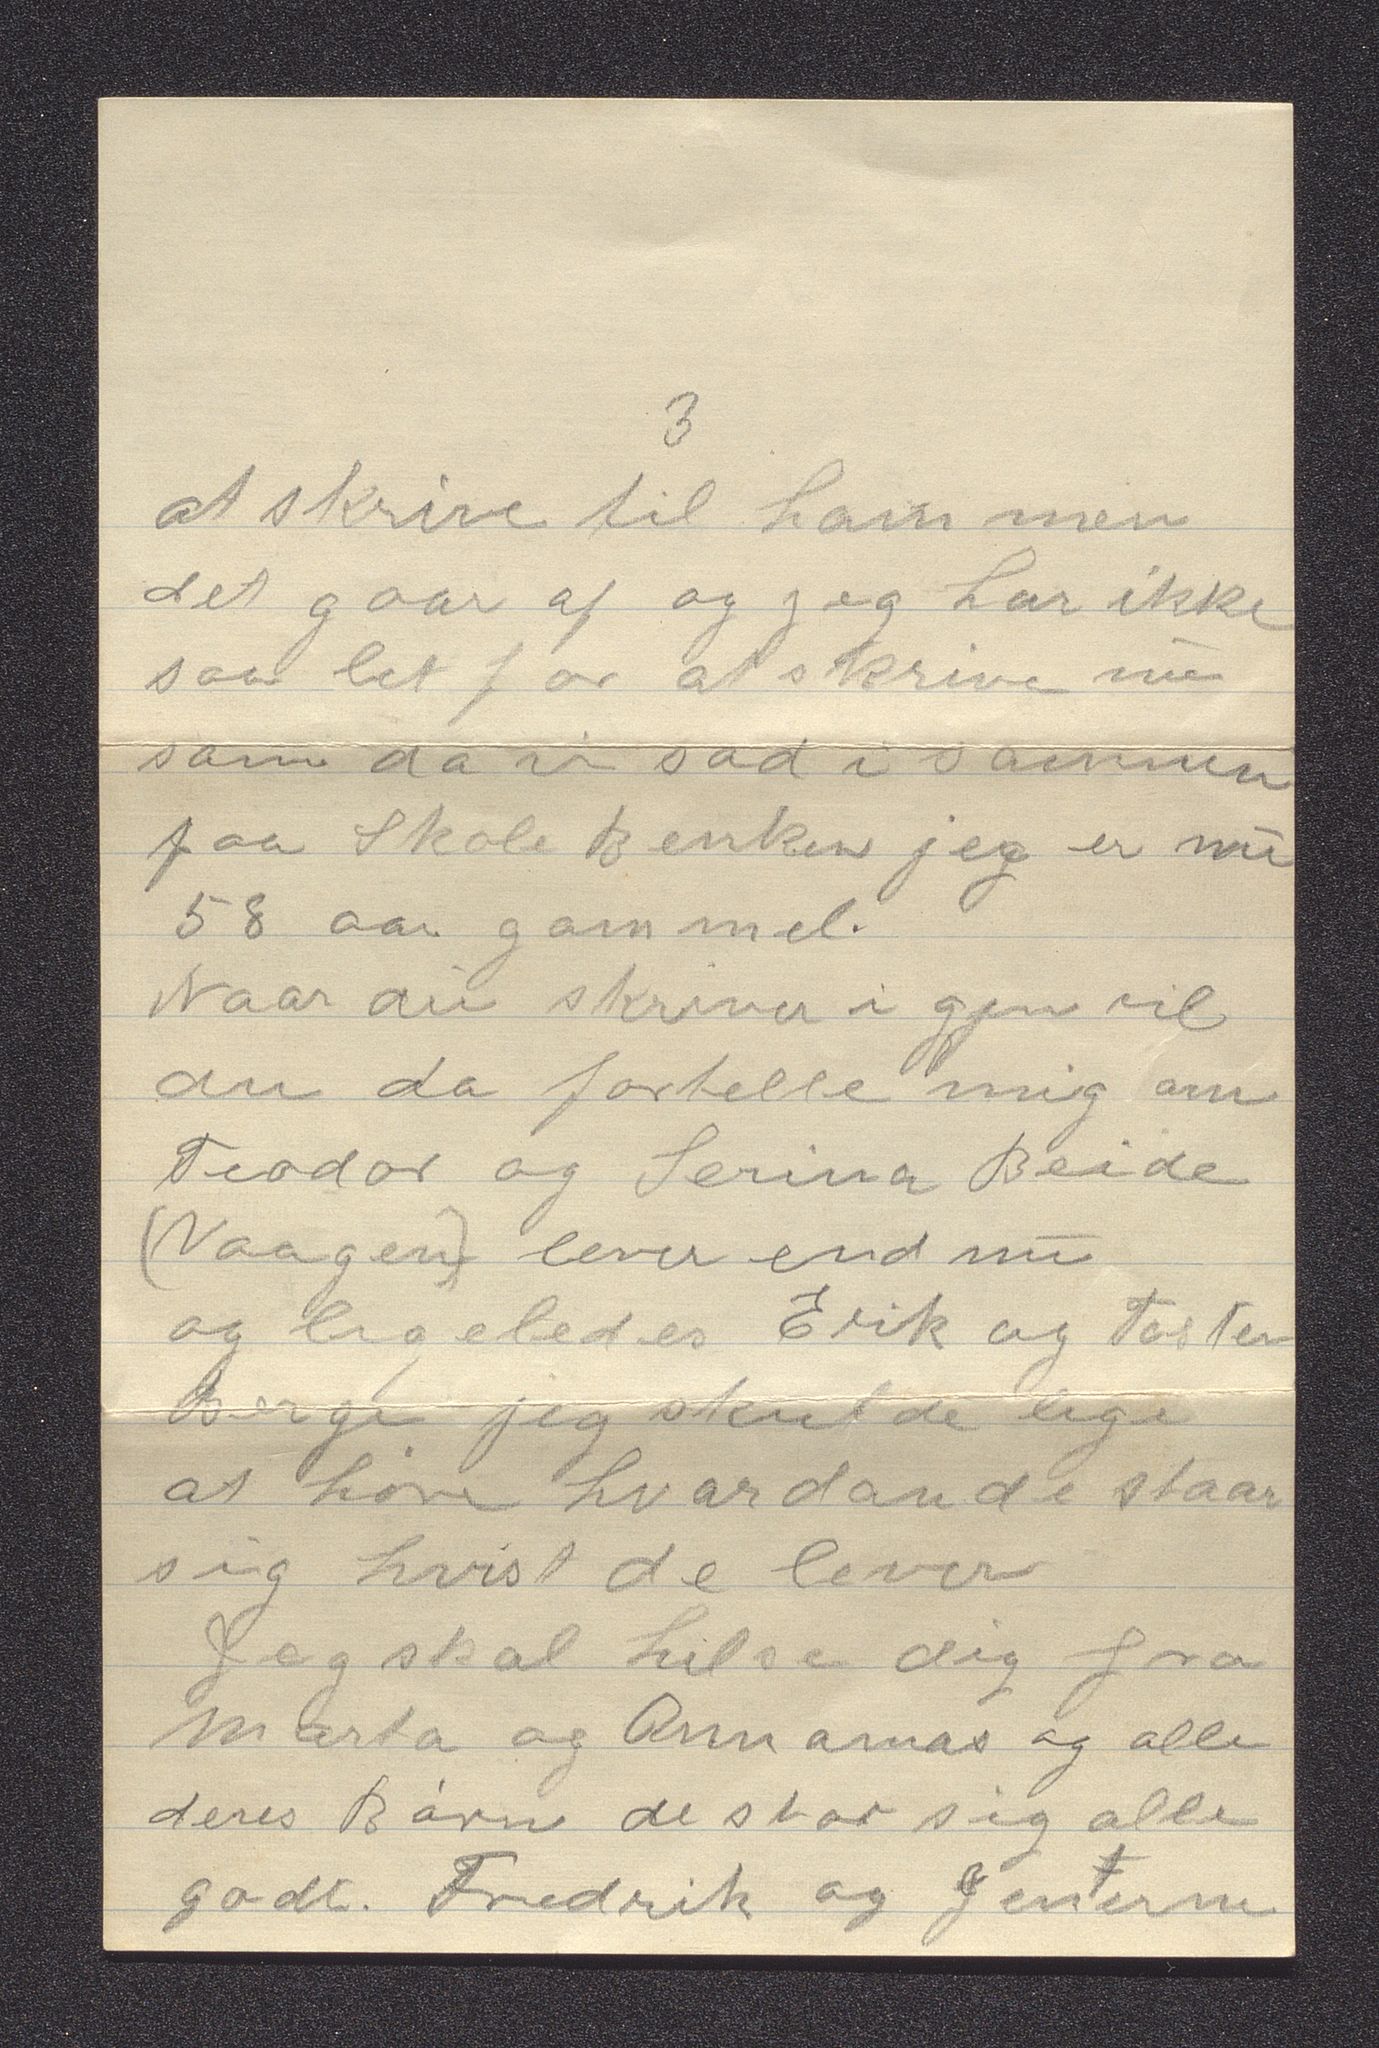 3
at skrive til ham men
det gaar af og jeg har ikke
saa let for at skrive nu
som da vi sad i sammen
paa Skole Benken jeg er nu
58 aar gammel.
Naar du skriver i gjen vil
du da fortelle mig om
Teodor og Serina Beide
(Vaagen) lever end nu
og ligeledes Erik og Tosten
Berge jeg skulde lige
at høre hvordan de staar
sig hvist de lever
Jeg skal hilse dig fra
Marta og Anna mas og alle
deres Børn de star sig alle
godt. Fredrik og Jenterne